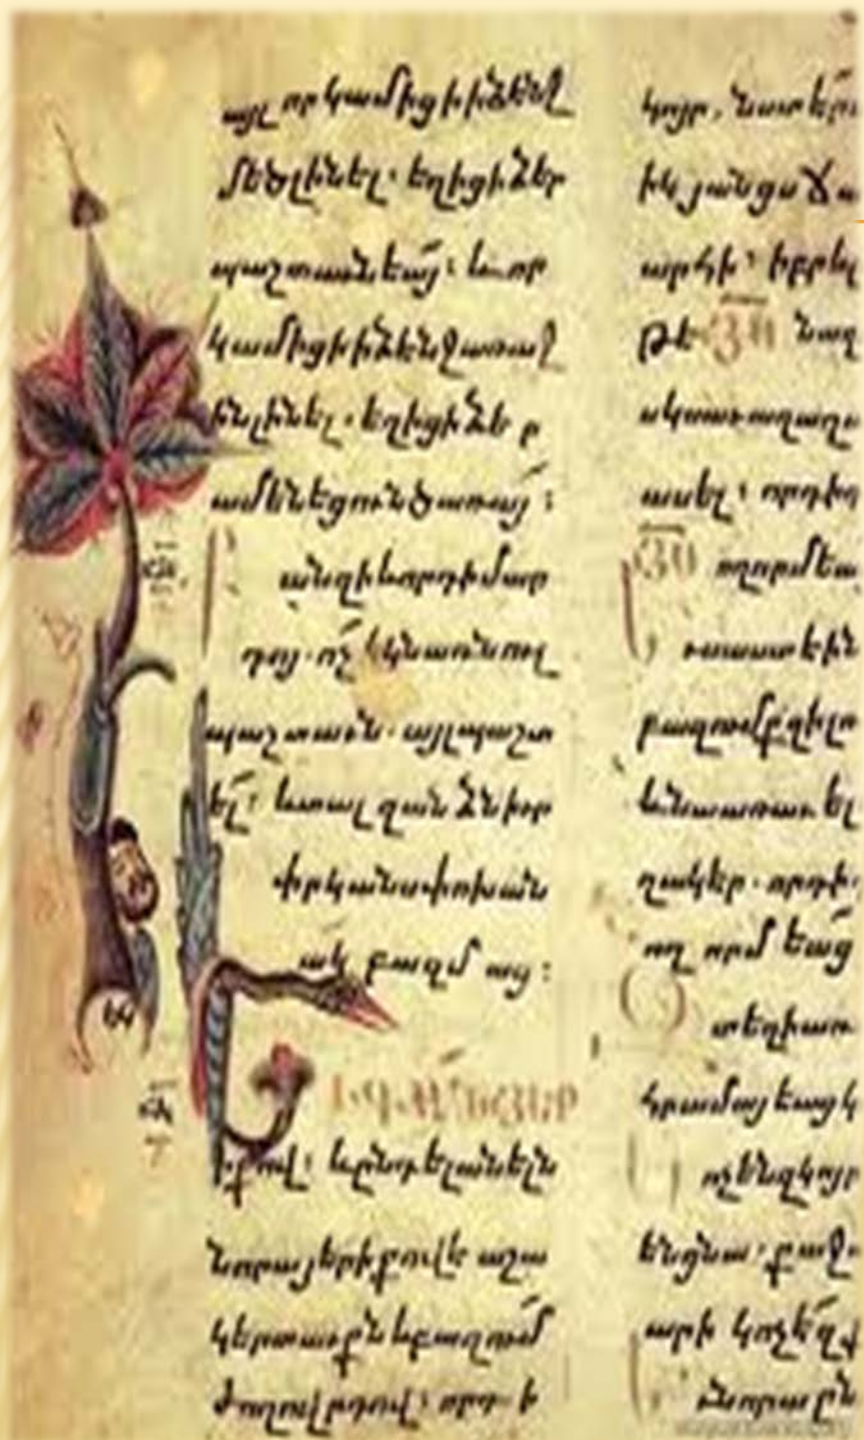 այլ որ կամիցի ի ձէնջ
մեծ լինել. եղիցի ձեր
պաշտաւնեայ։ և որ
կամիցի ի ձէնջ առաջ
ին լինել. եղիցի ձեր
ամենեցուն ծառայ։
անզի և որդի մար
դոյ. ոչ եկն առնուլ
պաշտաւն. այլ պաշտ
ել՝ և տալ զանձն իւր
փրկանս փոխան
ակ բազմաց։
ԵՒ ԳԱՆ ՅԵՐ
իքով՝ և ընդ ելանելն
նորա յերիքովէ աշա
կերտաւքն և բազում
ժողովրդով՝ որդի
կոյր, նստէր
իկ յանցս ճա
արհի՝ իբրև
թէ ՅՍ նազ
սկսաւ աղաղ
ասել՝ որդի
ՅՍ ողորմեա
սաստէին
բազումք զի լռ
և նա առաւել
ղակէր. որդի
ողորմեաց
տեղի առ
հրամայեաց կ
ոչել զկոյր
են ցնա՝ քաջ
արի կոչէ զք
նորա ըն